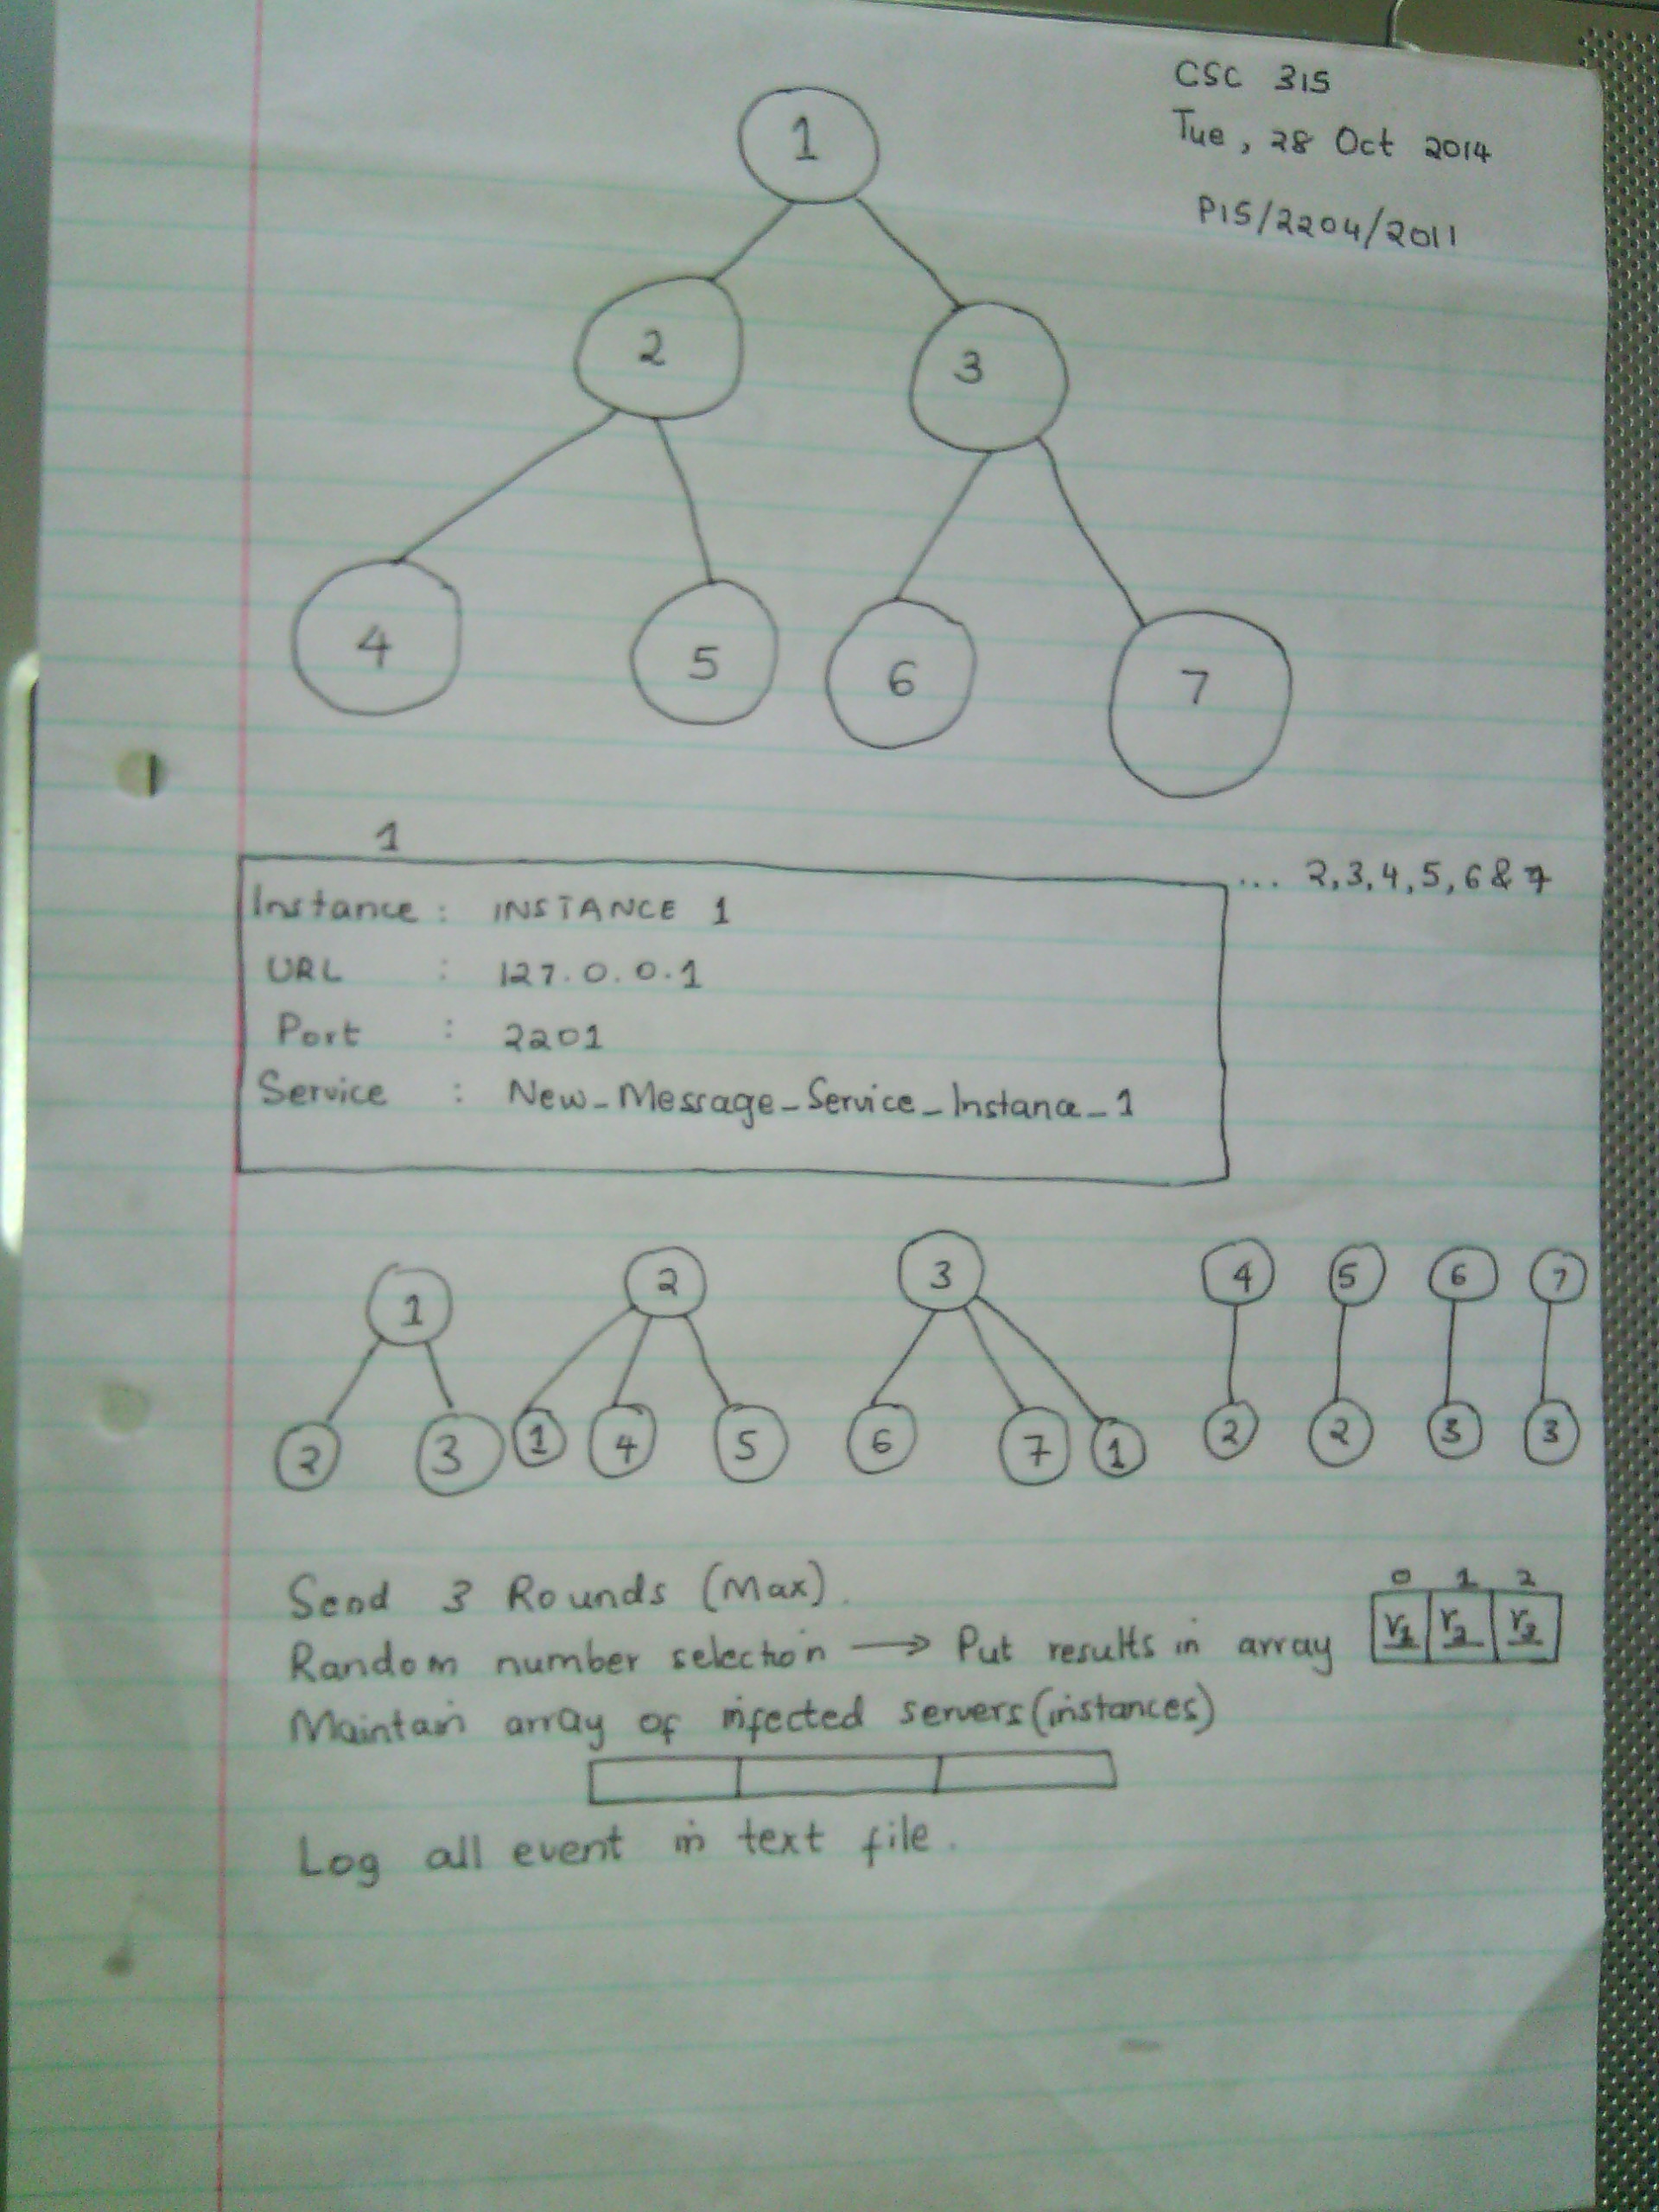 CSC 315
Tue, 28 Oct 2014
P15/2204/2011
1
2 3
4 5 6 7
1
... 2,3,4,5,6 & 7
Instance : INSTANCE 1
URL : 127.0.0.1
Port : 2201
Service : New_Message_Service_Instance_1
1 2 3 4 5 6 7
2 3 1 4 5 6 7 1 2 2 3 3
Send 3 Rounds (Max).
0 1 2
Random number selection → Put results in array
Maintain array of infected servers (instances)
Log all event in text file.